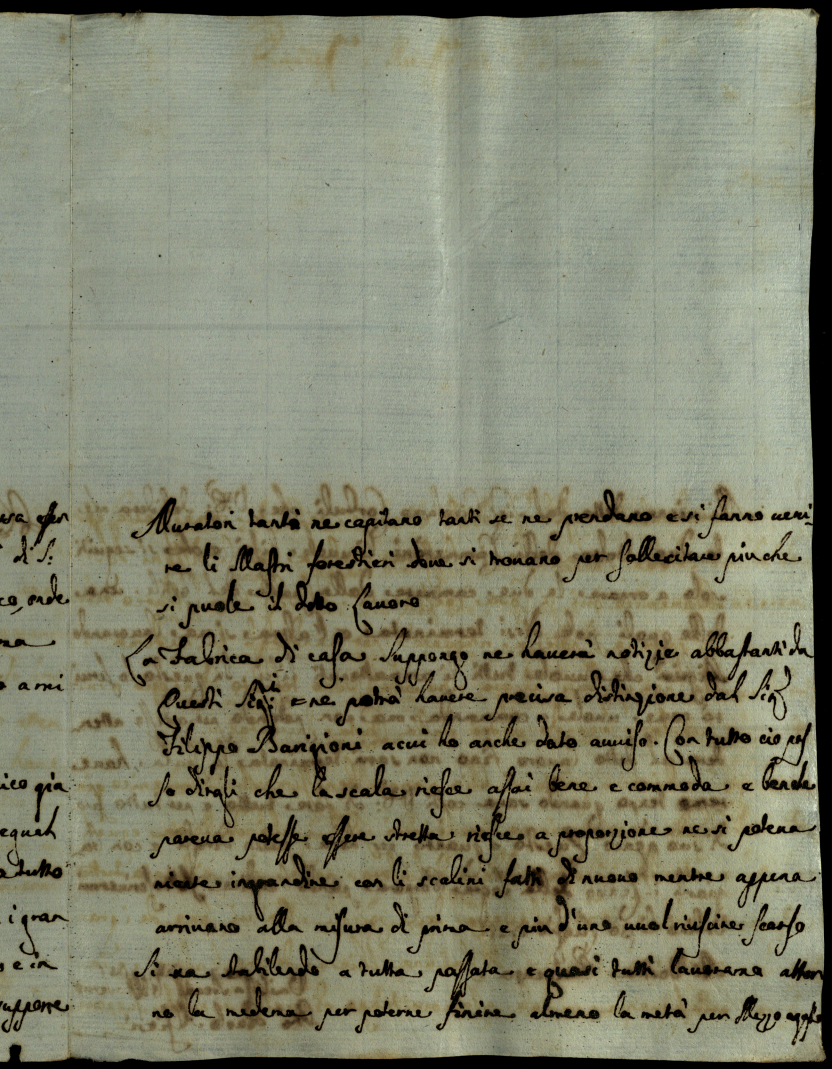 usa esser
di S.
co, onde
ma
o a mi
ico già
equal
a tutto
i gran
o e in
supporre
Muratori tanti ne capitano tanti se ne prendano e si fanno veni=
re li Mastri forestieri dove si trovano per sollecitare più che
si puole il detto Lavoro
La Fabrica di casa suppongo ne haverà notizie abbastanti da
Questi Sig.ri e ne potrà havere precisa distinzione dal Sig.
Filippo Barigioni a cui ho anche dato avviso. Con tutto cio pos
so dirgli che la scala riesce assai bene e commoda e benche
pareva potesse essere stretta riesce a proporzione ne si poteva
niente ingrandire con li scalini fatti di nuovo mentre appena
arrivano alla misura di prima e più d'uno vuol riuscire scarso
Si va stabilendo a tutta passata e quasi tutti lavorano attor
no la medema per poterne finire almeno la metà per Mezzo agosto